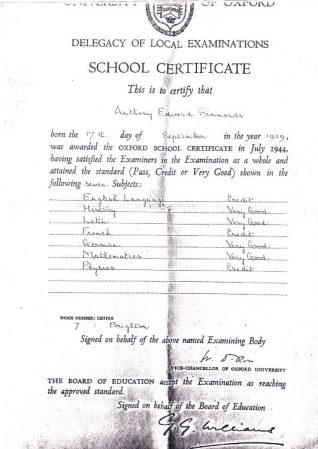 UNIVERSITY OF OXFORD
DELEGACY OF LOCAL EXAMINATIONS
SCHOOL CERTIFICATE
This is to certify that
Anthony Edward Simmonds
born the 17th day of September in the year 1929,
was awarded the OXFORD SCHOOL CERTIFICATE in July 1944,
having satisfied the Examiners in the Examination as a whole and
attained the standard (Pass, Credit or Very Good) shown in the
following seven Subjects:
English Language Credit
History Very Good
Latin Very Good
French Credit
German Very Good
Mathematics Very Good
Physics Credit
INDEX NUMBER: CENTRE
7 : Brighton
Signed on behalf of the above named Examining Body
W. D. Ross
VICE-CHANCELLOR OF OXFORD UNIVERSITY
THE BOARD OF EDUCATION accept the Examination as reaching
the approved standard.
Signed on behalf of the Board of Education
G. G. Williams